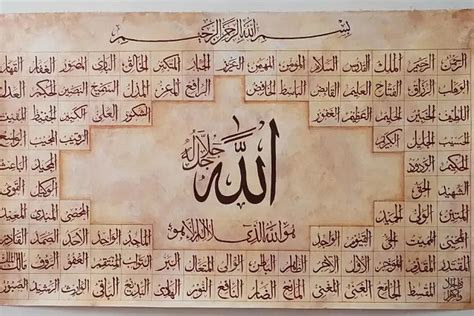 بسم الله الرحمن الرحيم
الرحمن الرحيم الملك القدوس السلام المؤمن المهيمن العزيز الجبار المتكبر الخالق البارئ المصور الغفار القهار
الوهاب الرزاق الفتاح العليم القابض الباسط الخافض الرافع المعز المذل السميع البصير الحكم العدل
اللطيف الخبير الحليم العظيم الغفور الشكور العلي الكبير الحفيظ المقيت
الحسيب الجليل
الودود المجيد
الشهيد الحق الوكيل
الله جل جلاله
المتين الولي
هو الله الذي لا إله إلا هو
المميت الحي القيوم الواجد الماجد الواحد الاحد الصمد القادر
المقتدر المقدم المؤخر الأول الآخر الظاهر الباطن الوالي المتعال البر التواب المنتقم العفو الرؤف مالك الملك
ذو الجلال والإكرام المقسط الجامع الغني المغني المانع الضار النافع النور الهادي البديع الباقي الوارث الرشيد الصبور